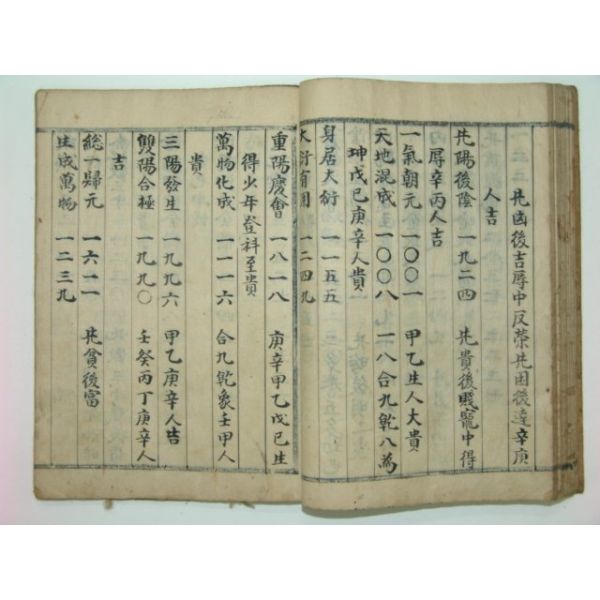 一二三五 先凶後吉辱中反榮先困後達辛庚
人吉
先陽後陰 一九二四 先貴後賤寵中得
辱辛丙人吉
一氣朝元 一〇〇一 甲乙生人大貴
天地混成 一〇〇八 一八合九乾八為
坤戊己庚辛人貴
身居大衍 一一五五
大衍有用 一二四九
重陽慶會 一八一八 庚辛甲乙戊己生
得少年登科至貴
萬物化成 一一一六 合九乾象壬甲人
貴
三陽發生 一九九六 甲乙庚辛人吉
雙陽合極 一九九〇 壬癸丙丁庚辛人
吉
總一歸元 一六二一 先貧後富
生成萬物 一二三九